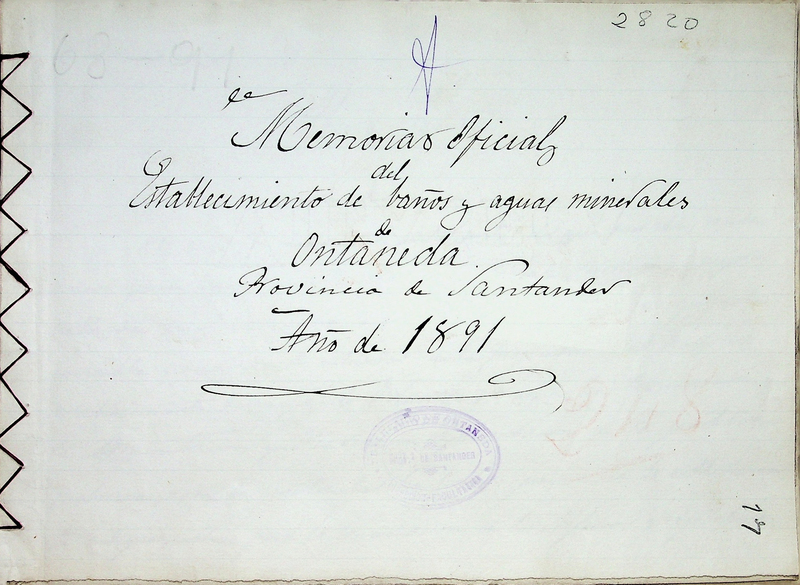 2820
63-91
Memoria Oficial
del
Establecimiento de baños y aguas minerales
de
Ontaneda
Provincia de Santander
Año de 1891
DE ONTANEDA
SANTANDER
17